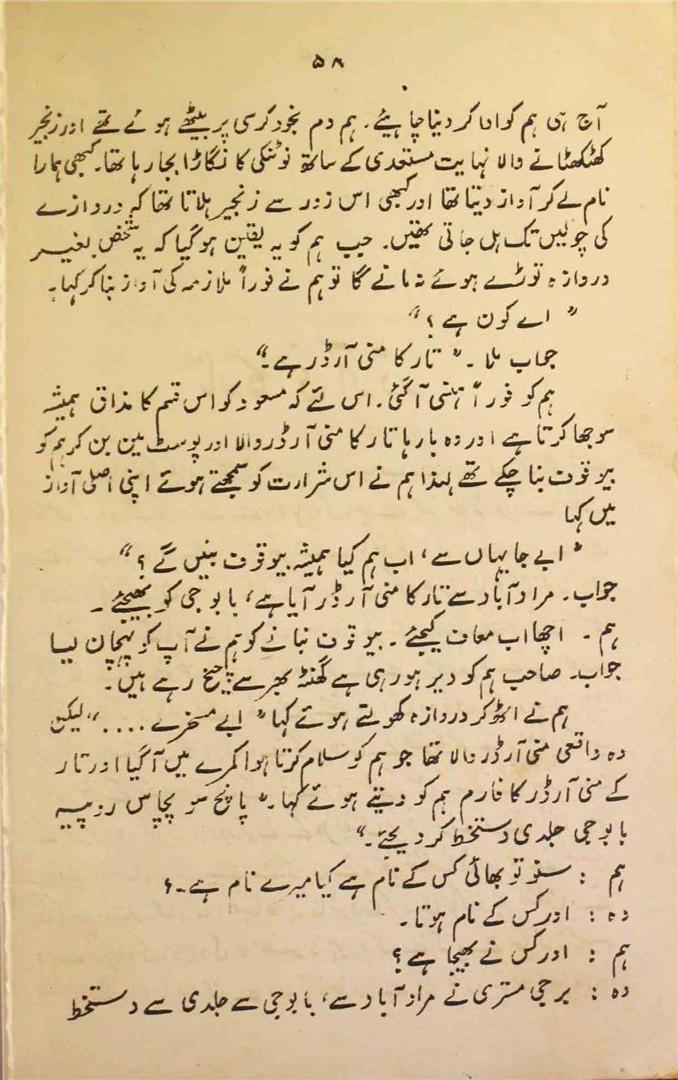 ۵۸
آج ہی ہم کو ادا کر دینا چاہیئے۔ ہم دم بخود کرسی پر بیٹھے ہوئے تھے اور زنجیر
کھٹکھٹانے والا نہایت مستعدی کے ساتھ نوٹنکی کا نگاڑا بجا رہا تھا۔ کبھی ہمارا
نام لے کر آواز دیتا تھا اور کبھی اس زور سے زنجیر ہلاتا تھا کہ دروازے
کی چولیں تک ہل جاتی تھیں۔ جب ہم کو یہ یقین ہو گیا کہ یہ شخص بغیر
دروازہ توڑے ہوئے نہ مانے گا تو ہم نے فوراً ملازمہ کی آواز بنا کر کہا۔
" اے کون ہے ؟ "
جواب ملا۔ " تار کا منی آرڈر ہے۔"
ہم کو فوراً ہنسی آ گئی۔ اس لئے کہ مسعود کو اس قسم کا مذاق ہمیشہ
سوجھا کرتا ہے اور وہ بارہا تار کا منی آرڈر والا اور پوسٹ مین بن کر ہم کو
بیوقوف بنا چکے تھے لہذا ہم نے اس شرارت کو سمجھتے ہوئے اپنی اصلی آواز
میں کہا
" ابے جا یہاں سے، اب ہم کیا ہمیشہ بیوقوف بنیں گے ؟ "
جواب۔ مراد آباد سے تار کا منی آرڈر آیا ہے، بابو جی کو بھیجئے۔
ہم۔ اچھا اب معاف کیجئے۔ بیوقوف بنانے کو ہم نے آپ کو پہچان لیا
جواب۔ صاحب ہم کو دیر ہو رہی ہے گھنٹہ بھر سے چیخ رہے ہیں۔
ہم نے اٹھ کر دروازہ کھولتے ہوئے کہا " ابے مسخرے ....." لیکن
وہ واقعی منی آرڈر والا تھا جو ہم کو سلام کرتا ہوا کمرے میں آ گیا اور تار
کے منی آرڈر کا فارم ہم کو دیتے ہوئے کہا۔ " پانچ سو پچاس روپیہ
بابو جی جلدی دستخط کر دیجئے۔"
ہم : سنو تو بھائی کس کے نام ہے کیا میرے نام ہے۔؟
وہ : اور کس کے نام ہوتا۔
ہم : اور کس نے بھیجا ہے ؟
وہ : برجی مستری نے مراد آباد سے، بابو جی سے جلدی سے دستخط